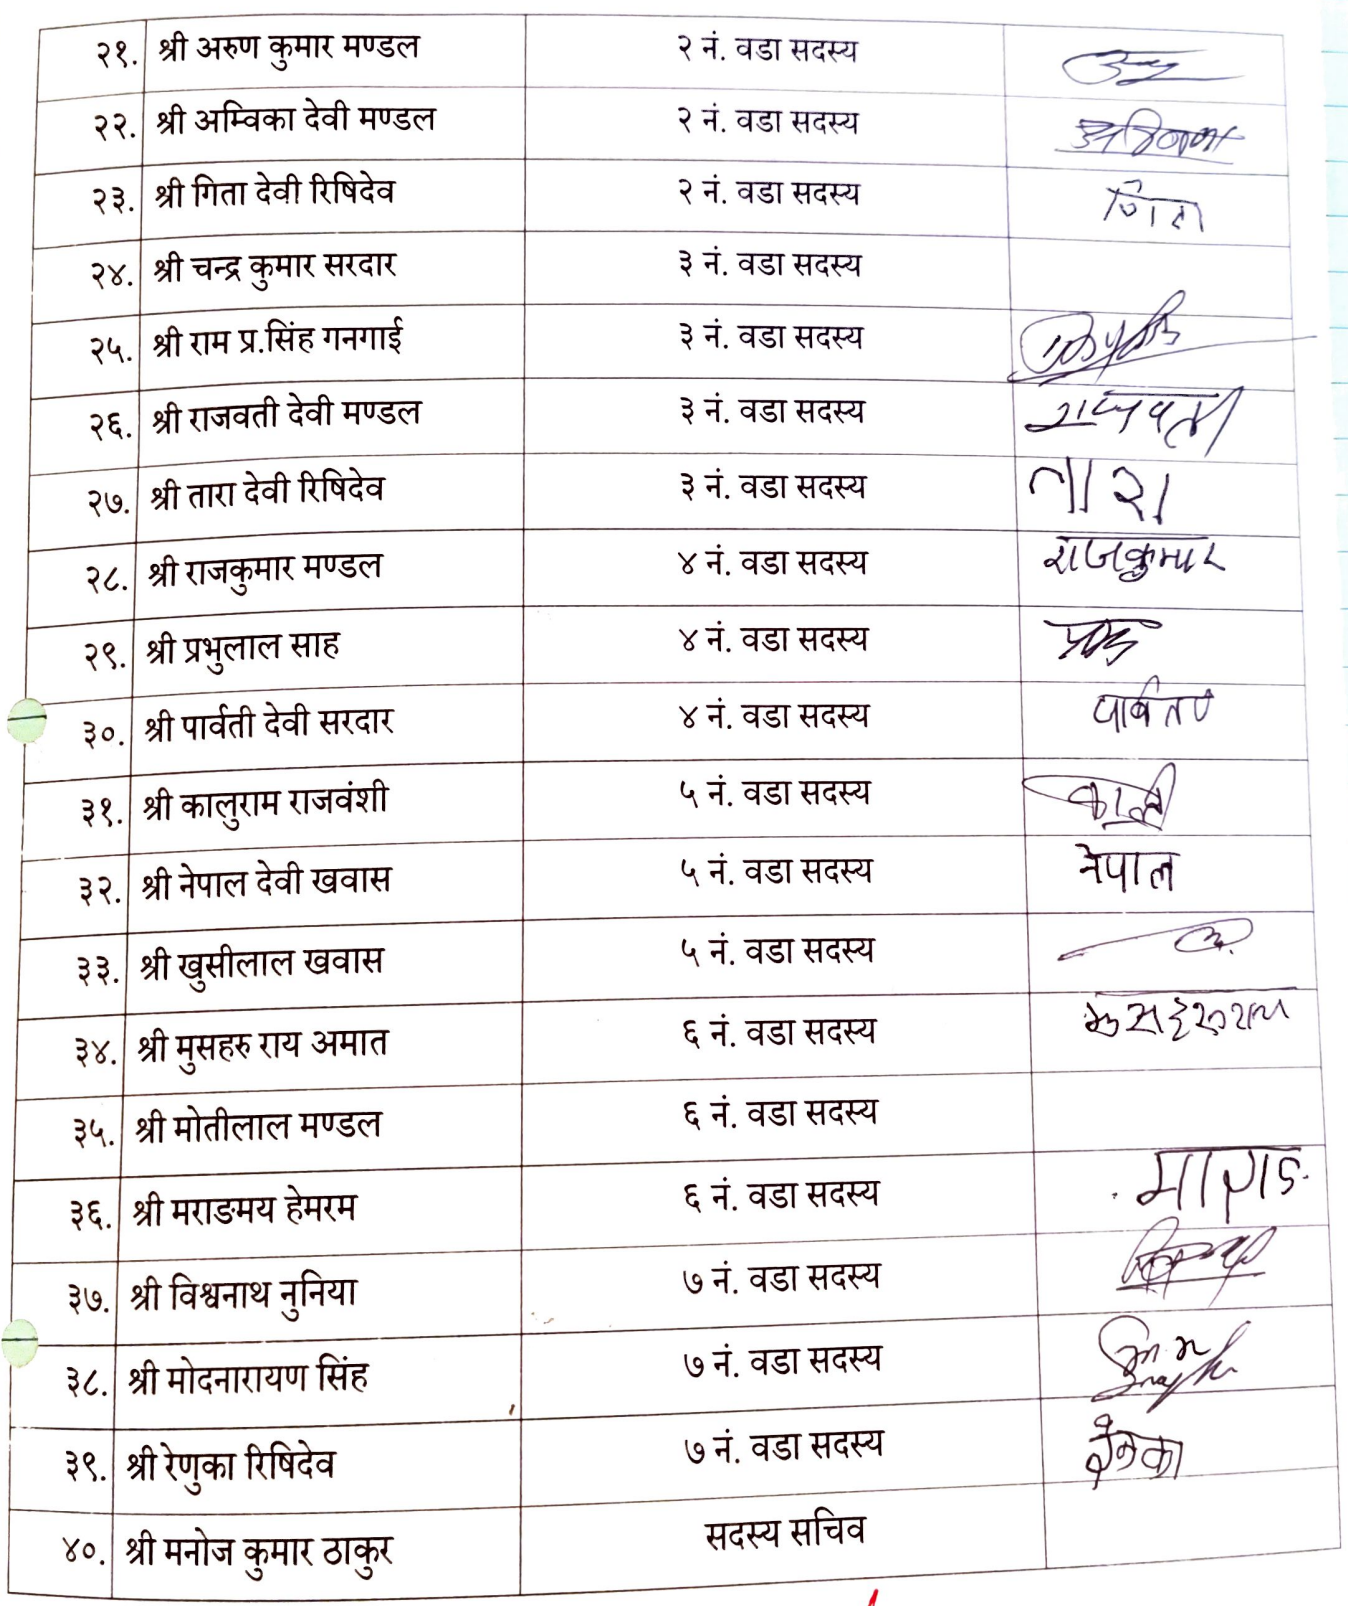 २१. श्री अरुण कुमार मण्डल २ नं. वडा सदस्य
२२. श्री अम्विका देवी मण्डल २ नं. वडा सदस्य
२३. श्री गिता देवी रिषिदेव २ नं. वडा सदस्य गिता
२४. श्री चन्द्र कुमार सरदार ३ नं. वडा सदस्य
२५. श्री राम प्र.सिंह गनगाई ३ नं. वडा सदस्य
२६. श्री राजवती देवी मण्डल ३ नं. वडा सदस्य राजवती
२७. श्री तारा देवी रिषिदेव ३ नं. वडा सदस्य तारा
२८. श्री राजकुमार मण्डल ४ नं. वडा सदस्य राजकुमार
२९. श्री प्रभुलाल साह ४ नं. वडा सदस्य
३०. श्री पार्वती देवी सरदार ४ नं. वडा सदस्य
३१. श्री कालुराम राजवंशी ५ नं. वडा सदस्य
३२. श्री नेपाल देवी खवास ५ नं. वडा सदस्य नेपाल
३३. श्री खुसीलाल खवास ५ नं. वडा सदस्य
३४. श्री मुसहरु राय अमात ६ नं. वडा सदस्य
३५. श्री मोतीलाल मण्डल ६ नं. वडा सदस्य
३६. श्री मराङमय हेमरम ६ नं. वडा सदस्य
३७. श्री विश्वनाथ नुनिया ७ नं. वडा सदस्य
३८. श्री मोदनारायण सिंह ७ नं. वडा सदस्य
३९. श्री रेणुका रिषिदेव ७ नं. वडा सदस्य
४०. श्री मनोज कुमार ठाकुर सदस्य सचिव